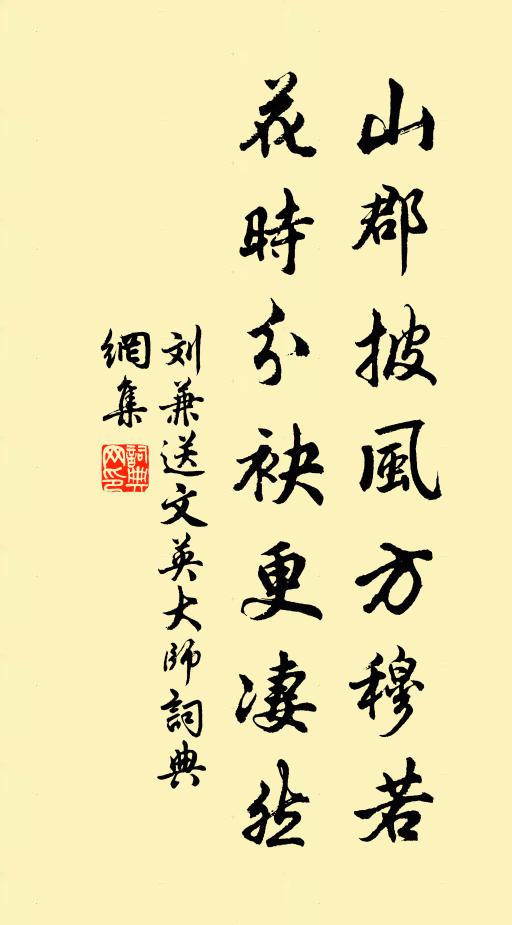 山郡披風方穆若
花時分袂更凄然
刘兼送文英大師詞典
網集
詞典
网印